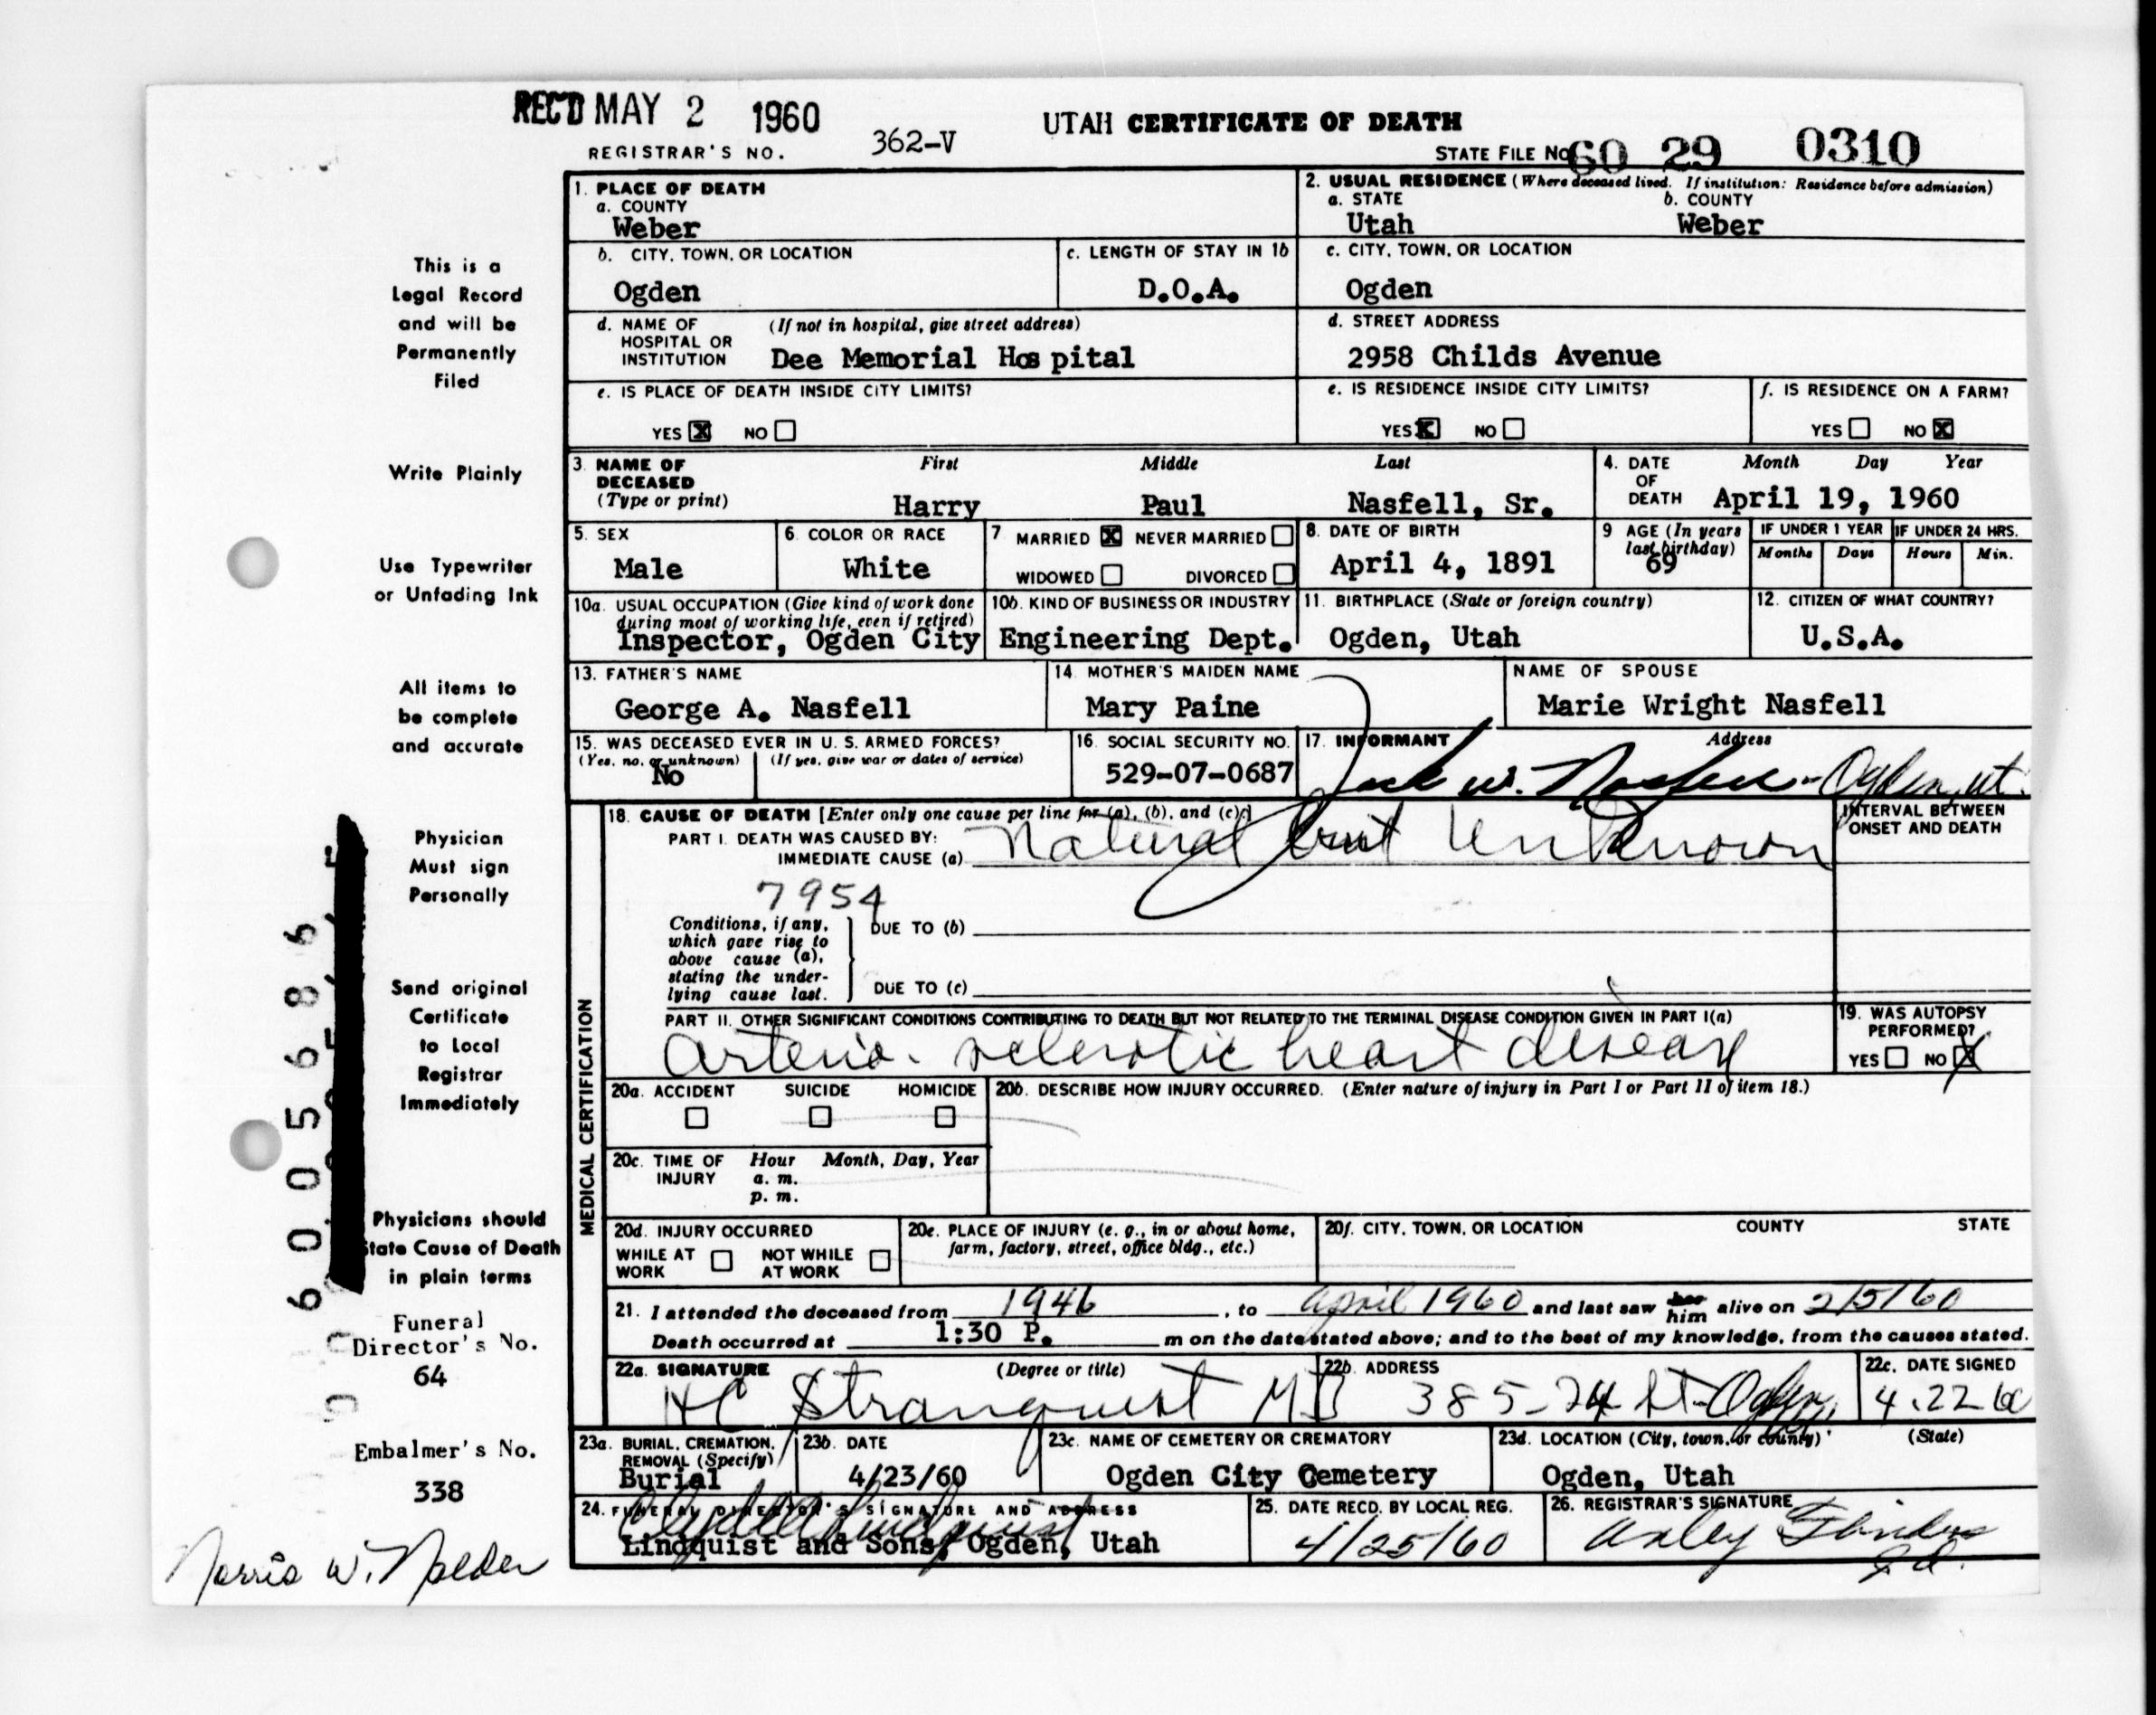 REC'D MAY 2 1960
UTAH CERTIFICATE OF DEATH
REGISTRAR'S NO. 362-V
STATE FILE No. 60 29 0310
This is a
Legal Record
and will be
Permanently
Filed
Write Plainly
Use Typewriter
or Unfading Ink
All items to
be complete
and accurate
Physician
Must sign
Personally
Send original
Certificate
to Local
Registrar
Immediately
Physicians should
State Cause of Death
in plain terms
Funeral
Director's No.
64
Embalmer's No.
338
Norris W. Nalder
6005686
1. PLACE OF DEATH
a. COUNTY
Weber
2. USUAL RESIDENCE (Where deceased lived. If institution: Residence before admission)
a. STATE b. COUNTY
Utah Weber
b. CITY, TOWN, OR LOCATION
Ogden
c. LENGTH OF STAY IN 1b
D.O.A.
c. CITY, TOWN, OR LOCATION
Ogden
d. NAME OF (If not in hospital, give street address)
HOSPITAL OR
INSTITUTION Dee Memorial Hospital
d. STREET ADDRESS
2958 Childs Avenue
e. IS PLACE OF DEATH INSIDE CITY LIMITS?
YES X NO
e. IS RESIDENCE INSIDE CITY LIMITS?
YES X NO
f. IS RESIDENCE ON A FARM?
YES NO X
3. NAME OF First Middle Last
DECEASED
(Type or print) Harry Paul Nasfell, Sr.
4. DATE Month Day Year
OF
DEATH April 19, 1960
5. SEX
Male
6. COLOR OR RACE
White
7 MARRIED X NEVER MARRIED
WIDOWED DIVORCED
8. DATE OF BIRTH
April 4, 1891
9 AGE (In years
last birthday)
69
IF UNDER 1 YEAR IF UNDER 24 HRS.
Months Days Hours Min.
10a. USUAL OCCUPATION (Give kind of work done
during most of working life, even if retired)
Inspector, Ogden City
10b. KIND OF BUSINESS OR INDUSTRY
Engineering Dept.
11. BIRTHPLACE (State or foreign country)
Ogden, Utah
12. CITIZEN OF WHAT COUNTRY?
U.S.A.
13. FATHER'S NAME
George A. Nasfell
14. MOTHER'S MAIDEN NAME
Mary Paine
NAME OF SPOUSE
Marie Wright Nasfell
15. WAS DECEASED EVER IN U. S. ARMED FORCES?
(Yes, no, or unknown) (If yes, give war or dates of service)
No
16. SOCIAL SECURITY NO.
529-07-0687
17. INFORMANT Address
Jack W. Nasfell - Ogden, Ut.
MEDICAL CERTIFICATION
18. CAUSE OF DEATH [Enter only one cause per line for (a), (b), and (c).]
PART I. DEATH WAS CAUSED BY:
IMMEDIATE CAUSE (a) Natural but Unknown
INTERVAL BETWEEN
ONSET AND DEATH
7954
Conditions, if any,
which gave rise to
above cause (a),
stating the under-
lying cause last.
DUE TO (b)
DUE TO (c)
PART II. OTHER SIGNIFICANT CONDITIONS CONTRIBUTING TO DEATH BUT NOT RELATED TO THE TERMINAL DISEASE CONDITION GIVEN IN PART I(a)
Arterio-sclerotic heart disease
19. WAS AUTOPSY
PERFORMED?
YES NO X
20a. ACCIDENT SUICIDE HOMICIDE
20b. DESCRIBE HOW INJURY OCCURRED. (Enter nature of injury in Part I or Part II of item 18.)
20c. TIME OF Hour Month, Day, Year
INJURY a. m.
p. m.
20d. INJURY OCCURRED
WHILE AT NOT WHILE
WORK AT WORK
20e. PLACE OF INJURY (e. g., in or about home,
farm, factory, street, office bldg., etc.)
20f. CITY, TOWN, OR LOCATION COUNTY STATE
21. I attended the deceased from 1946, to April 1960 and last saw her him alive on 2/5/60
Death occurred at 1:30 P. m on the date stated above; and to the best of my knowledge, from the causes stated.
22a. SIGNATURE (Degree or title)
HC Stranquist MD
22b. ADDRESS
385-24 St. Ogden,
22c. DATE SIGNED
4.22 60
23a. BURIAL, CREMATION,
REMOVAL (Specify)
Burial
23b. DATE
4/23/60
23c. NAME OF CEMETERY OR CREMATORY
Ogden City Cemetery
23d. LOCATION (City, town, or county) (State)
Ogden, Utah
24. FUNERAL DIRECTOR'S SIGNATURE AND ADDRESS
Lindquist and Sons, Ogden, Utah
25. DATE RECD. BY LOCAL REG.
4/25/60
26. REGISTRAR'S SIGNATURE